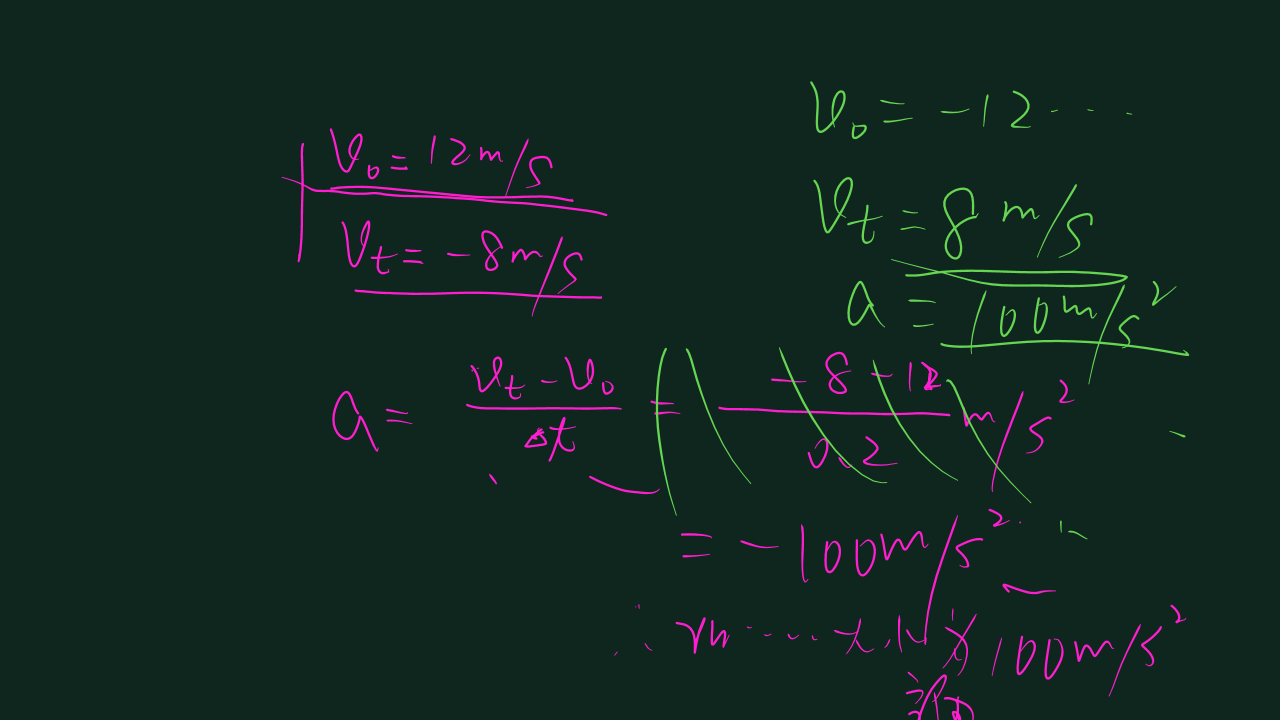 v₀ = 12 m/s
v_t = -8 m/s
v₀ = -12 ....
v_t = 8 m/s
a = 100 m/s²
a = (v_t - v₀)/Δt = (-8 - 12)/0.2 m/s²
= -100 m/s²
∴ ..... 大小为 100 m/s²